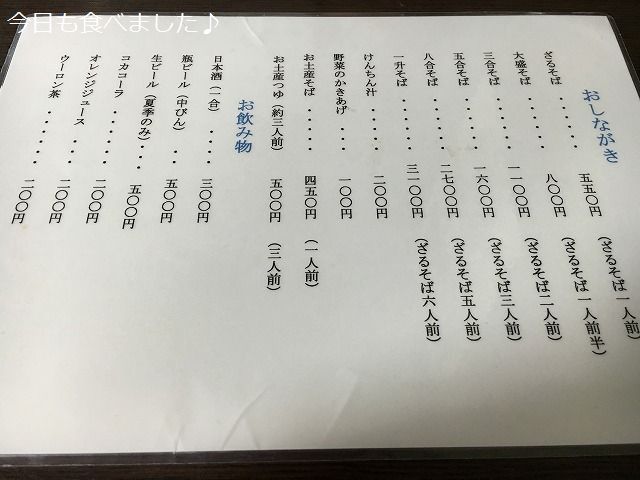 今日も食べました♪
おしながき
ざるそば・・・・・・五五〇円（ざるそば一人前）
大盛そば・・・・・・八〇〇円（ざるそば一人前半）
三合そば・・・・・・一一〇〇円（ざるそば二人前）
五合そば・・・・・・一六〇〇円（ざるそば三人前）
八合そば・・・・・・二七〇〇円（ざるそば五人前）
一升そば・・・・・・三一〇〇円（ざるそば六人前）
けんちん汁・・・・・二〇〇円
野菜のかきあげ・・・一〇〇円
お土産そば・・・・・四五〇円（一人前）
お土産つゆ（約三人前）五〇〇円（三人前）
お飲み物
日本酒（一合）・・・・三〇〇円
瓶ビール（中びん）・・五〇〇円
生ビール（夏季のみ）・・・五〇〇円
コカコーラ・・・・・二〇〇円
オレンジジュース・・・二〇〇円
ウーロン茶・・・・・・二〇〇円